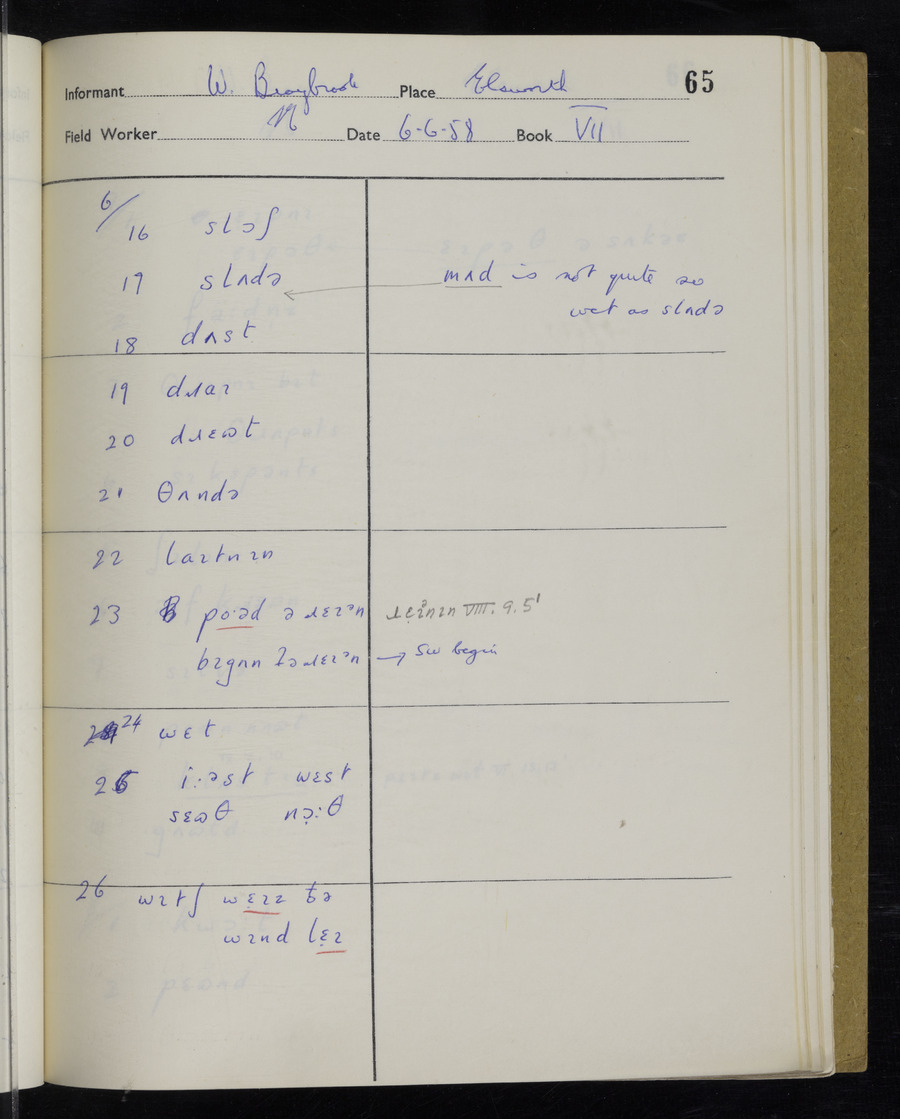 65
Informant W. Braybrook Place Elsworth
Field Worker N Date 6-6-58 Book VII
6/16 slɔʃ
17 slʌdə mʌd is not quite so
wet as slʌdə
18 dʌst
19 dɹaɪ
20 dɹɛɷt
21 θʌndə
22 laɪtnɪn
23 po·əd ə ɹɛɪᵊn VIII. 9. 5'
bɪgʌn tə ɹɛɪᵊn → SW begin
24 wɛt
25 i:əst wɛst
sɛɷθ nɔ̣:θ
26 wɪtʃ wɛ̣ɪz ðə
wɪnd lɛ̣ɪ